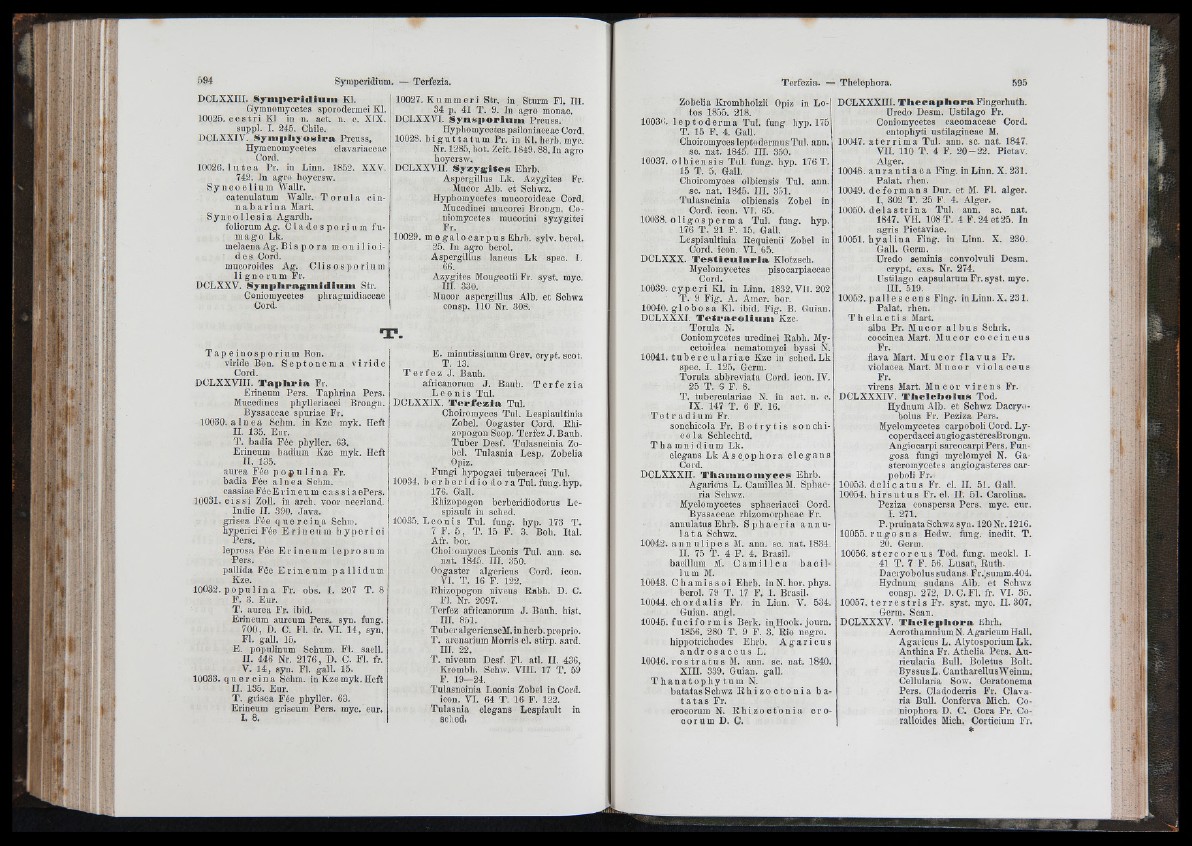 594
Symperidium. — Terfezia.
DCLXXIII. Symperidium Kl.
Gymnomycetes sporodermei Kl.
10025. cestri Kl in n. act. n. c. XIX.
suppl. I. 245. Chile.
DCLXXIV. Symphyosira Preuss.
Hymenomycetes clavariaceae
Cord.
10026. lutea Pr. in Linn. 1852. XXV.
742. In agro hoyersw.
Syncoelium Wallr.
catenulatum Wallr. Torula cin-
nabarina Mart.
Syncollesia Agardh.
foliorum Ag. Cladosporium fu-
mago Lk.
melaena Ag. Bispora monilioi-
des Cord.
mucoroides Ag. Clisosporium
lignorum Fr.
DCLXXV. Synphragmidium Str.
Coniomycetes phragmidiaceae
Cord.
10027. Kummeri Str. in Sturm Fl. III.
34 p. 41 T. 9. In agro monac.
DCLXXVI. Synsporium Preuss.
Hyphomycetes psiloniaceae Cord.
10028. biguttatum Pr. in Kl. herb. myc.
Nr. 1285, bot. Zeit. 1849. 88. In agro
hoyersw.
DCLXXVII. Syzygites Ehrb.
Aspergillus Lk. Azygites Fr.
Mucor Alb. et Schwz.
Hyphomycetes mucoroideae Cord.
Mucedinei mucorei Brongn. Co-
niomycetes mucorini syzygitei
Fr.
10029. megalocarpus Ehrb. sylv. berol.
25. In agro berol.
Aspergillus laneus Lk spec. I.
66.
Azygites Mougeotii Fr. syst. myc.
III. 330.
Mucor aspergillus Alb. et Schwz
consp. 110 Nr. 308.
T.
Tapeinosporium Bon.
viride Bon. Septonema viride
Cord.
DCLXXVIII. Taphria Fr.
Erineum Pers. Taphrina Pers.
Mucedines phylleriacei Brongn.
Byssaceae spuriae Fr.
10030. alnea Schm. in Kze myk. Heft
II. 135. Eur.
T. badia Fée phyller. 63.
Erineum badium Kze myk. Heft
II. 135.
aurea Fée populina Fr.
badia Fée alnea Schm.
cassiae Fée Erineum cassiae Pers.
10031. cissi Zoll. in arch. voor neerland.
Indie II. 390. Java.
grisea Fée quercina Schm.
hyperici Fée Erineum hyperici
Pers.
leprosa Fée Erineum leprosum
Pers.
pallida Fée Erineum pallidum
Kze.
10032. populina Fr. obs. I. 207 T. 8
F. 3. Eur.
T. aurea Fr. ibid.
Erineum aureum Pers. syn. fung.
700, D. C. Fl. fr. VI. 14, syn.
Fl. gall. 15.
E. populinum Schum. Fl. saell.
II. 446 Nr. 2176, D. C. Fl. fr.
V. 14, syn. Fl. gall. 15.
10033. quercina Schm. in Kze myk. Heft
II. 135. Eur.
T. grisea Fée phyller. 63.
Erineum griseum Pers. myc. eur.
I. 8.
E. minutissimum Grev. crypt. scot.
T. 13.
Terfez J. Bauh.
africanorum J. Bauh. Terfezia
Leonis Tul.
DCLXXIX. Terfezia Tul.
Choiromyces Tul. Lespiaultinia
Zobel. Oogaster Cord. Rhi-
zopogon Scop. Terfez J. Bauh.
Tuber Desf. Tulasneinia Zo-
bel. Tulasnia Lesp. Zobelia
Opiz.
Fungi hypogaei tuberacei Tul.
10034. berberidiodora Tul. fung. hyp.
176. Gall.
Rhizopogon berberidiodorus Le-
spiault in sched.
10035. Leonis Tul. fung. hyp. 173 T.
7 F. 5, T. 15 F. 3. Boh. Ital.
Afr. bor.
Choiromyces Leonis Tul. ann. sc.
nat. 1845. III. 350.
Oogaster algericus Cord. icon.
VI. T. 16 F. 122.
Rhizopogon niveus Rabh. D. C.
Fl. Nr. 2097.
Terfez africanorum J. Bauh. hist.
III. 851.
Tuber algeriense M. in herb. proprio.
T. arenarium Morris el. stirp. sard.
III. 22.
T. niveum Desf. Fl. atl. II. 436,
Krombh. Schw. VIII. 17 T. 59
F. 19—24.
Tulasneinia Leonis Zobel in Cord.
icon. VI. 64 T. 16 F. 122.
Tulasnia elegans Lespiault in
sched.
Terfezia. — Thelephora.
595
Zobelia Krombholzii Opiz in Lo-
tos 1855. 218.
10036. leptoderma Tul. fung. hyp. 175
T. 15 F. 4. Gall.
Choiromyces leptodermus Tul. ann.
sc. nat. 1845. III. 350.
10037. olbiensis Tul. fung. hyp. 176 T.
15 T. 5. Gall.
Choiromyces olbiensis Tul. ann.
sc. nat. 1845. III. 351.
Tulasneinia olbiensis Zobel in
Cord. icon. VI. 65.
10038. oligosperma Tul. fung. hyp.
176 T. 21 F. 15. Gall.
Lespiaultinia Requienii Zobel in
Cord. icon. VI. 65.
DCLXXX. Testicularia Klotzsch.
Myelomycetes pisocarpiaceae
Cord.
10039. cyperi Kl. in Linn. 1832. VII. 202
T. 9 Fig. A. Amer. bor.
10040. globosa Kl. ibid. Fig. B. Guian.
DCLXXXI. Tetracolium Kze.
Torula N.
Coniomycetes uredinei Rabh. My-
cetoidea nematomyci byssi N.
10041. tuberculariae Kze in sched. Lk
spec. I. 125. Germ.
Torula abbreviata Cord. icon. IV.
25 T. 6 F. 8.
T. tuberculariae N. in act. n. c.
IX. 147 T. 6 F. 16.
Tetradium Fr.
sonchicola Fr. Botrytis sonchi-
cola Schlechtd.
Thamnidium Lk.
elegans Lk Ascophora elegans
Cord.
DCLXXXII. Thamnomyces Ehrb.
Agaricus L. Camillea M. Sphae-
ria Schwz.
Myelomycetes sphaeriacei Cord.
Byssaceae rhizomorpheae Fr.
annulatus Ehrb. Sphaeria annu-
lata Schwz.
10042. annulipes M. ann. sc. nat. 1834.
II. 75 T. 4 F. 4. Brasil.
bacillum M. Camillea bacil-
lum M.
10043. Chamissoi Ehrb. in N. hor. phys.
berol. 79 T. 17 F. 1. Brasil.
10044. chordalis Fr. in Linn. V. 534.
Guian. angl.
10045. fuciformis Berk. in Hook. journ.
1856, 280 T. 9 F. 3. Rio negro.
hippotrichodes Ehrb. Agaricus
androsaceus L.
10046. rostratus M. ann. sc. nat. 1840.
XIII. 339. Guian. gall.
Thanatophytum N.
batatas Schwz Rhizoctonia ba-
tatas Fr.
crocorum N. Rhizoctonia cro-
corum D. C.
DCLXXXIII. Thecaphora Fingerhuth.
Uredo Desm. Ustilago Fr.
Coniomycetes caeomaceae Cord.
entophyti ustilagineae M.
10047. aterrima Tul. ann. sc. nat. 1847.
VII. 110 T. 4 F. 20—22. Pictav.
Alger.
10048. aurantiaca Fing. in Linn. X. 231.
Palat. rhen.
10049. deformans Dur. et M. Fl. alger.
I. 302 T. 25 F. 4. Alger.
10050. delastrina Tul. ann. sc. nat.
1847. VII. 108 T. 4 F. 24 et 25. In
agris Pictaviae.
10051. hyalina Fing. in Linn. X. 230.
Gall. Germ.
Uredo seminis convolvuli Desm.
crypt. exs. Nr. 274.
Ustilago capsularum Fr. syst. myc.
III. 519.
10052. pallescens Fing. in Linn. X. 231.
Palat. rhen.
Thelactis Mart.
alba Pr. Mucor albus Schrk.
coccinea Mart. Mucor coccineus
Fr.
flava Mart. Mucor flavus Fr.
violacea Mart. Mucor violaceus
Fr.
virens Mart. Mucor virens Fr.
DCLXXXIV. Thelebolus Tod.
Hydnum Alb. et Schwz Dacryo-
bolus Fr. Peziza Pers.
Myelomycetes carpoboli Cord. Ly-
coperdacei angiogastères Brongn.
Angiocarpi sarcocarpi Pers. Fun-
gosa fungi myelomyci N. Ga-
steromycetes angiogasteres car-
peboli Fr.
10053. delicatus Fr. el. II. 51. Gall.
10054. hirsutus Fr. el. II. 51. Carolina.
Peziza conspersa Pers. myc. eur.
I. 271.
P. pruinata Schwz syn. 120 Nr. 1216.
10055. rugosus Hedw. fung. inedit. T.
20. Germ.
10056. stercoreus Tod. fung. meckl. I.
41 T. 7 F. 56. Lusat. Ruth.
Dacryobolus sudans. Fr. summ. 404.
Hydnum sudans Alb. et Schwz
consp. 272, D. C. Fl. fr. VI. 35.
10057. terrestris Fr. syst. myc. II. 307.
Germ. Scan.
DCLXXXV. Thelephora Ehrh.
Acrothamnium N. Agaricum Hall.
Agaricus L. Alytosporium Lk.
Anthina Fr. Athelia Pers. Au-
ricularia Bull. Boletus Bolt.
Byssus L. Cantharellus Weinm.
Cellularia Sow. Ceratonema
Pers. Cladoderris Fr. Clava-
ria Bull. Conferva Mich. Co-
niophora D. C. Cora Fr. Co-
ralloides Mich. Corticium Fr.
*